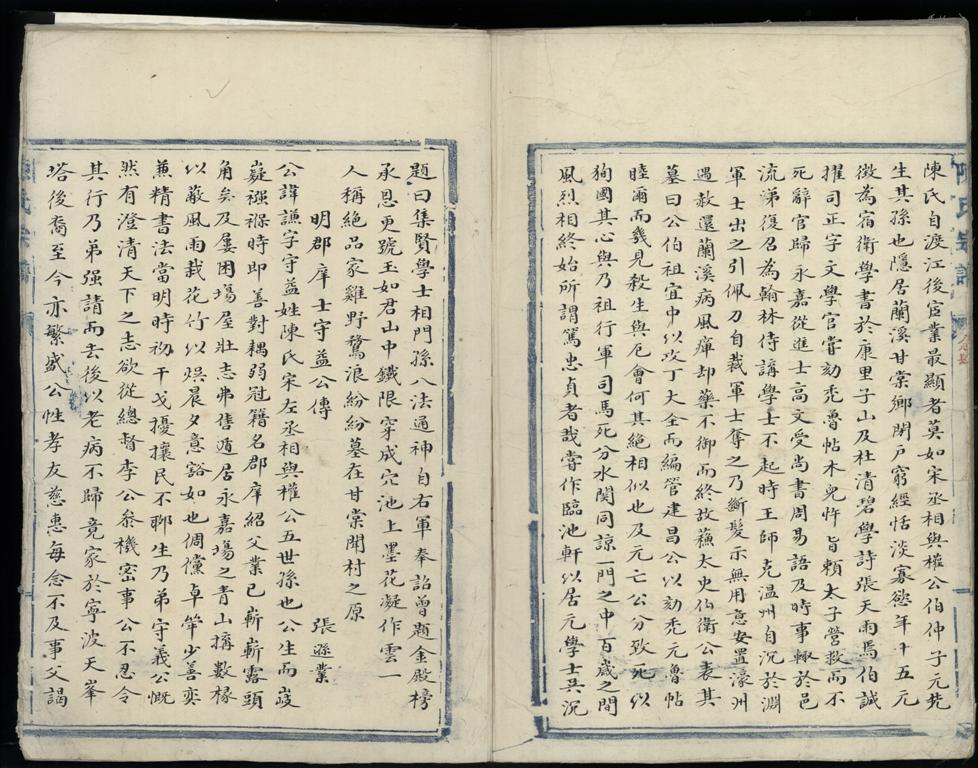 陳氏自渡江後宦業最顯者莫如宋丞相與權公伯仲子元凴
生其孫也隱居蘭溪甘棠鄉閉戶窮經恬淡寡慾年十五元
徴為宿衛學書於康里子山及杜清碧學詩張天雨馬伯誠
擢司正字文學官甞刻禿魯帖木兒忤旨賴太子營救而不
死辭官歸永嘉從進士高文受尚書周易語及時事輒於邑
流涕復召為翰林侍講學士不起時王師克溫州自沉於淵
軍士出之引佩刀自裁軍士奪之乃斷髮示無用意安置濠州
遇赦還蘭溪病風痺却藥不御而終故蘓太史伯衡公表其
墓曰公伯祖宜中以攻丁大全而編管建昌公以刻禿元魯帖
睦濔而㡬見殺生與厄會何其絕相似也及元亡公分致死以
狥國其心與乃祖行軍司馬死分水関同諒一門之中百歲之間
風烈相終始所謂篤忠貞者㢤甞作臨池軒以居元學士吳沉
題曰集賢學士相門孫八法通神自右軍奉詔曾題金殿榜
承恩更號玉如君山中鐵限穿成穴池上墨花凝作雲一
人稱絕品家雞野鶩浪紛紛墓在甘棠開村之原
明郡庠士守益公傳 張遜業
公諱謙字守益姓陳氏宋左丞相與權公五世孫也公生而岐
嶷襁褓時即善對耦弱冠籍名郡庠紹父業已嶄嶄露頭
角矣及屢困塲屋壯志弗售遁居永嘉塲之青山搆數椽
以蔽風雨栽花竹以娛晨夕意豁如也倜儻卓犖少善奕
兼精書法當明時初干戈擾攘民不聊生乃弟守義公慨
然有澄清天下之志欲從總督李公叅機宻事公不忍令
其行乃弟强請而去後以老病不歸竟家於寧波天峯
塔後裔至今亦繁盛公性孝友慈惠每念不及事父謁